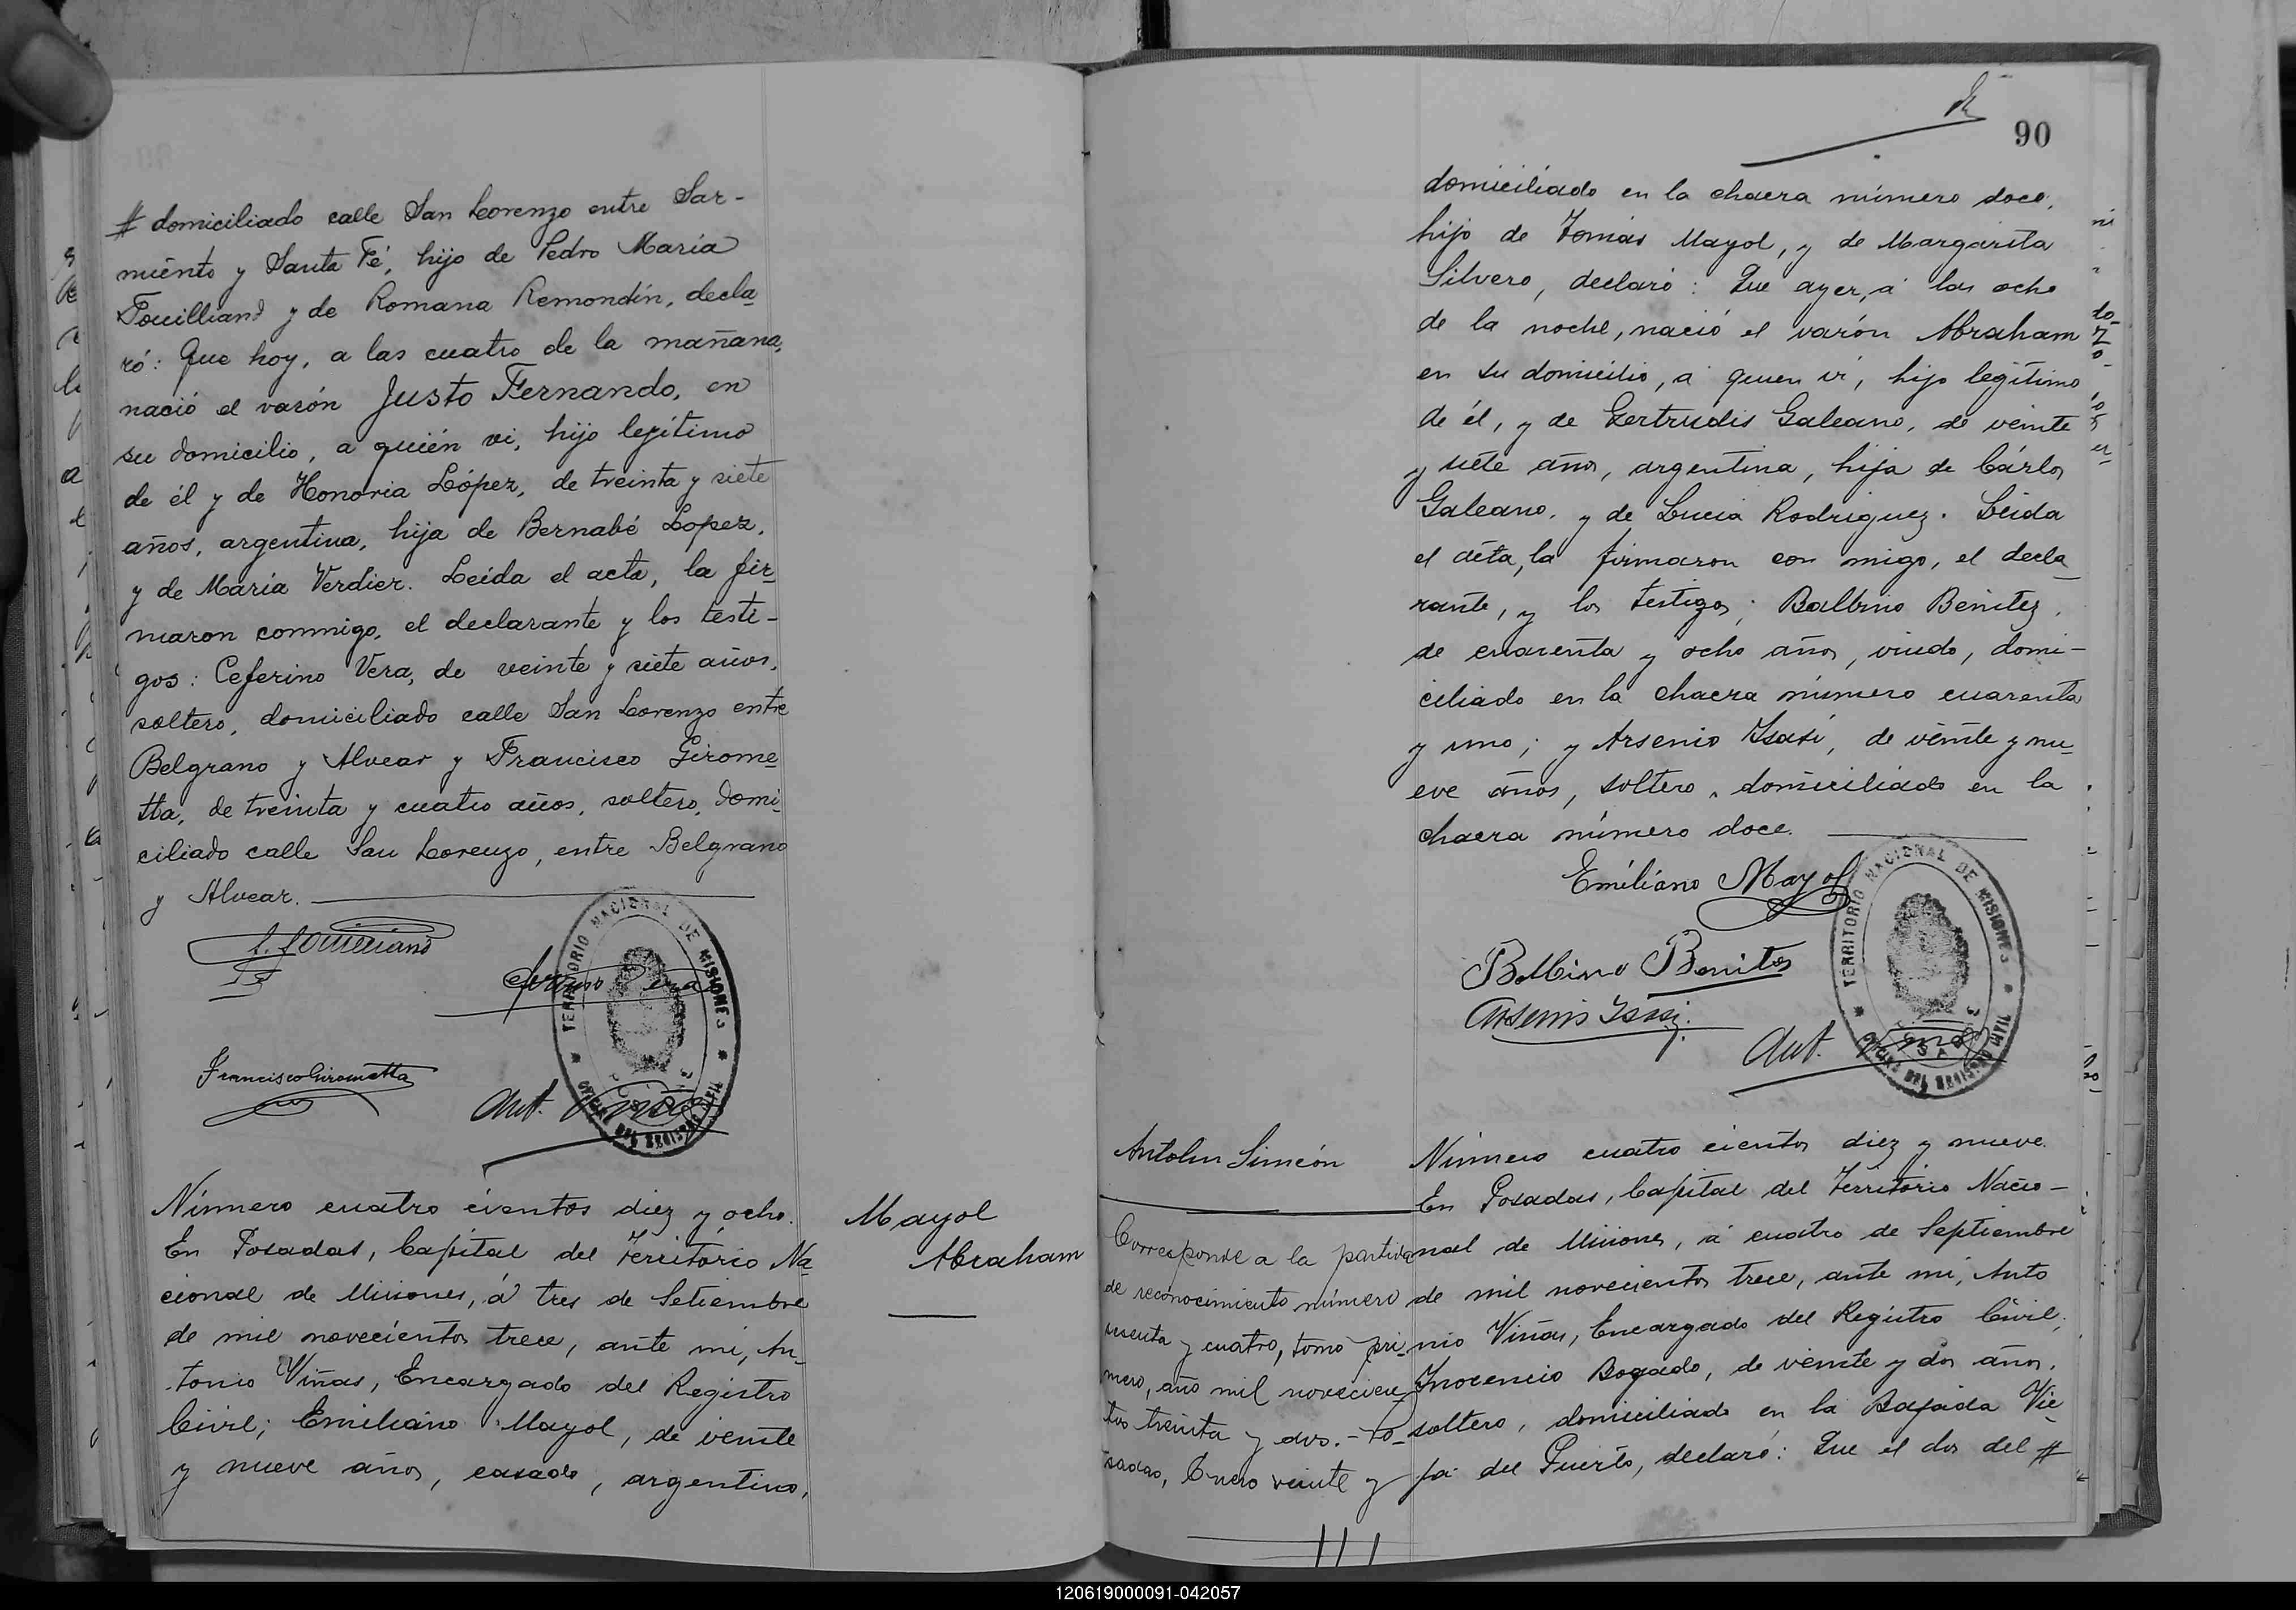 # domiciliado calle San Lorenzo entre Sar-
miento y Santa Fé, hijo de Pedro María
Fouilliand y de Romana Remondín, decla
ró: Que hoy, a las cuatro de la mañana,
nació el varón Justo Fernando, en
su domicilio, a quién vi, hijo legítimo
de él y de Honoria López, de treinta y siete
años, argentina, hija de Bernabé Lopez,
y de María Verdier. Leída el acta, la fir
maron conmigo, el declarante y los testi-
gos: Ceferino Vera, de veinte y siete años,
soltero, domiciliado calle San Lorenzo entre
Belgrano y Alvear y Francisco Girome
tta, de treinta y cuatro años, soltero, domi
ciliado calle San Lorenzo, entre Belgrano
y Alvear.
Francisco Girometta
Ant. Viñas
TERRITORIO NACIONAL DE MISIONES
OFICINA DEL REGISTRO CIVIL
Número cuatro cientos diez y ocho.
En Posadas, Capital del Territorio Na
cional de Misiones, á tres de Setiembre
de mil novecientos trece, ante mi, An
tonio Viñas, Encargado del Registro
Civil; Emiliano Mayol, de veinte
y nueve años, casado, argentino,
Mayol
Abraham
90
domiciliado en la chacra número doce,
hijo de Tomás Mayol, y de Margarita
Silvero, declaró: Que ayer, á las ocho
de la noche, nació el varón Abraham
en su domicilio, a quien vi, hijo legítimo
de él, y de Gertrudis Galeano, de veinte
y siete años, argentina, hija de Cárlos
Galeano, y de Lucia Rodriguez. Leida
el acta, la firmaron con migo, el decla
rante, y los testigos; Balbino Benitez,
de cuarenta y ocho años, viudo, domi-
ciliado en la chacra número cuarenta
y uno; y Arsenio Isasi, de veinte y nu
eve años, soltero, domiciliado en la
chacra número doce.
Emiliano Mayol
Balbino Benites
Arsenio Isasi
Ant. Viñas
TERRITORIO NACIONAL DE MISIONES
OFICINA DEL REGISTRO CIVIL
Antolin Simeón
Corresponde a la partida
de reconocimiento número
sesenta y cuatro, tomo pri-
mero, año mil novecien
tos treinta y dos.- Po-
sadas, Enero veinte y
Número cuatro cientos diez y nueve.
En Posadas, Capital del Territorio Nacio-
nal de Misiones, á cuatro de Septiembre
de mil novecientos trece, ante mi, Anto
nio Viñas, Encargado del Registro Civil;
Inocencio Bogado, de veinte y dos años,
soltero, domiciliado en la Bajada Vie
ja del Puerto, declaró: Que el dos del #
120619000091-042057